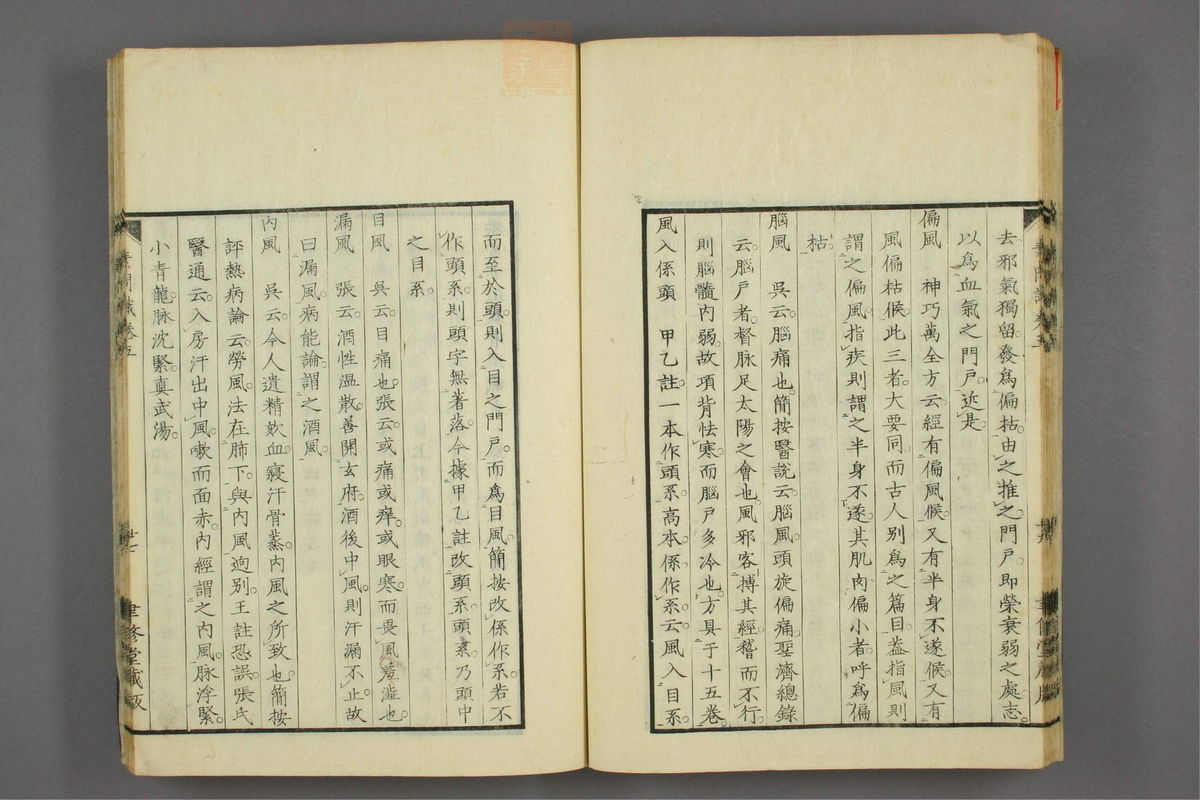 去邪氣獨留。發爲偏枯。由之推之。門戸即榮衰弱之處。志
以爲血氣之門戸。近是。
偏風　神巧萬全方云。經有偏風候。又有半身不遂候。又有
風偏枯候。此三者。大要同。而古人別爲之篇目。蓋指風則
謂之偏風。指疾則謂之半身不遂。其肌肉偏小者。呼爲偏
枯。
腦風　吳云。腦痛也。簡按醫說云。腦風頭旋偏痛。聖濟總錄
云。腦戸者。督脉足太陽之會也。風邪客搏其經。稽而不行。
則腦髓內弱。故項背怯寒。而腦戸多冷也。方具于十五卷。
風入係頭　甲乙註。一本作頭系。高本。係作系。云風入目系
素問識卷五
聿修堂藏版
而至於頭。則入目之門戸。而爲目風。簡按改係作系。若不
作頭系。則頭字無著落。今據甲乙註。改頭系。頭系乃頭中
之目系。
目風　吳云。目痛也。張云。或痛或痒。或眼寒。而畏風羞澁也。
漏風　張云。酒性溫散。善開玄府。酒後中風。則汗漏不止。故
曰漏風。病能論。謂之酒風。
內風　吳云。今人遺精欬血。寢汗骨蒸。內風之所致也。簡按
評熱病論云。勞風。法在肺下。與內風逈別。王註恐誤。張氏
醫通云。入房汗出中風。嗽而面赤。內經謂之內風。脉浮緊。
小青龍。脉沈緊。眞武湯。
素問識卷五
廿七
聿修堂藏版